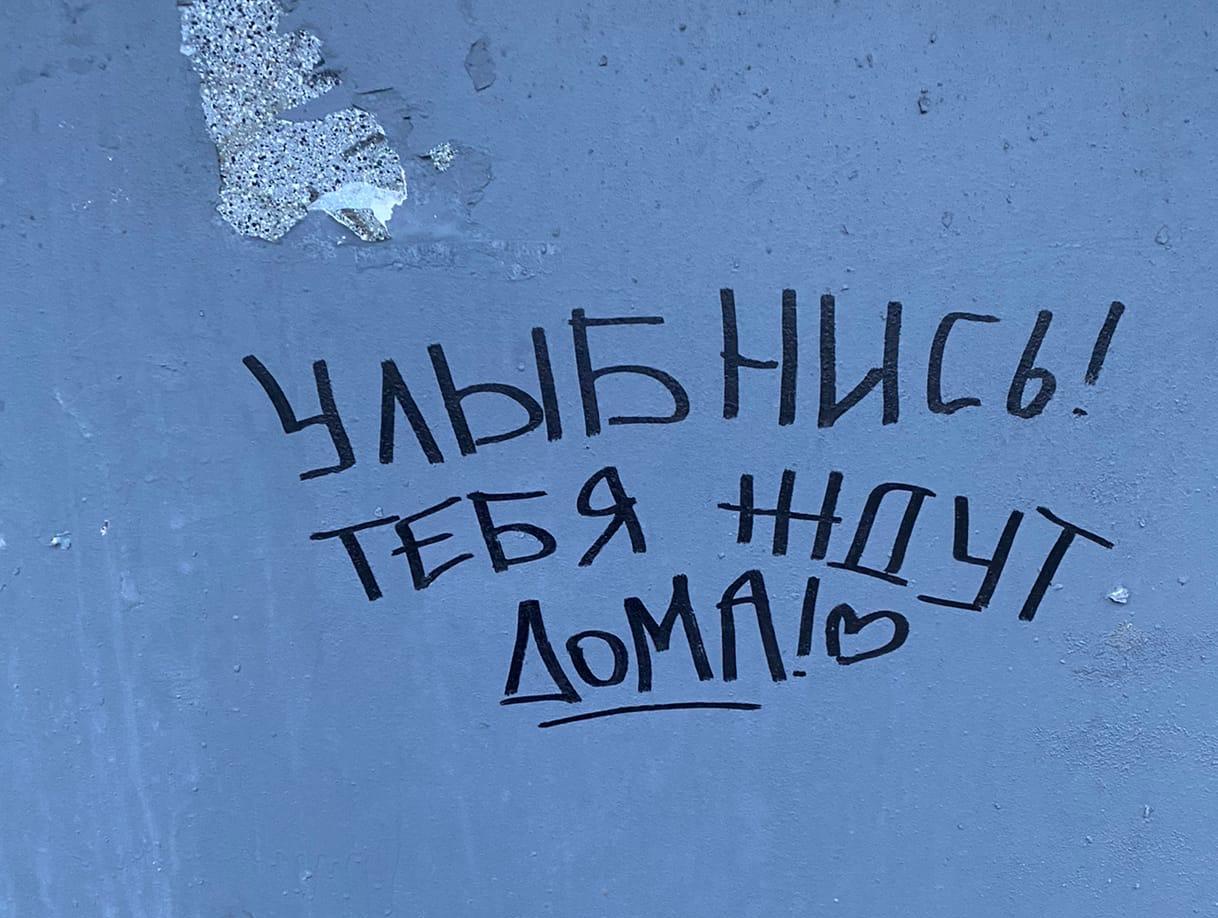 УЛЫБНИСЬ!
ТЕБЯ ЖДУТ
ДОМА!♡